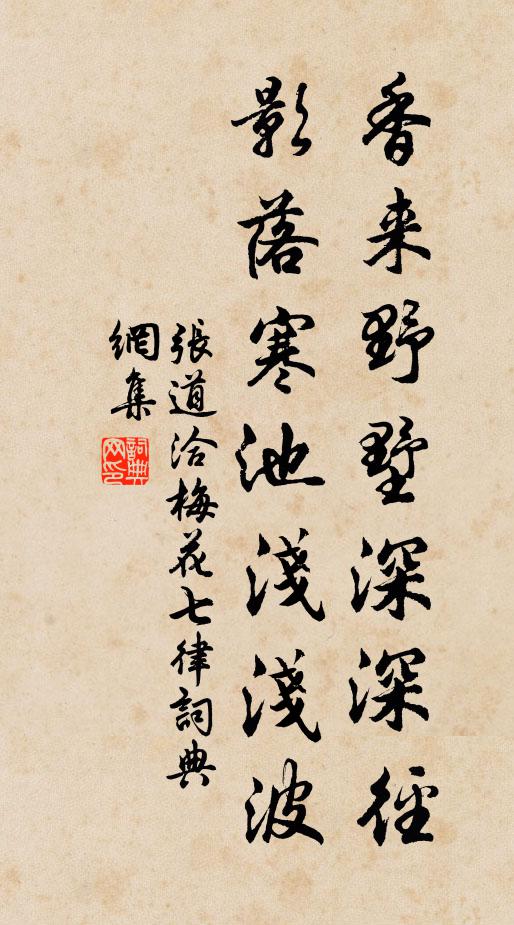 香来野墅深深徑
影落寒池淺淺波
張道洽梅花七律詞典
網集
詞典
网印